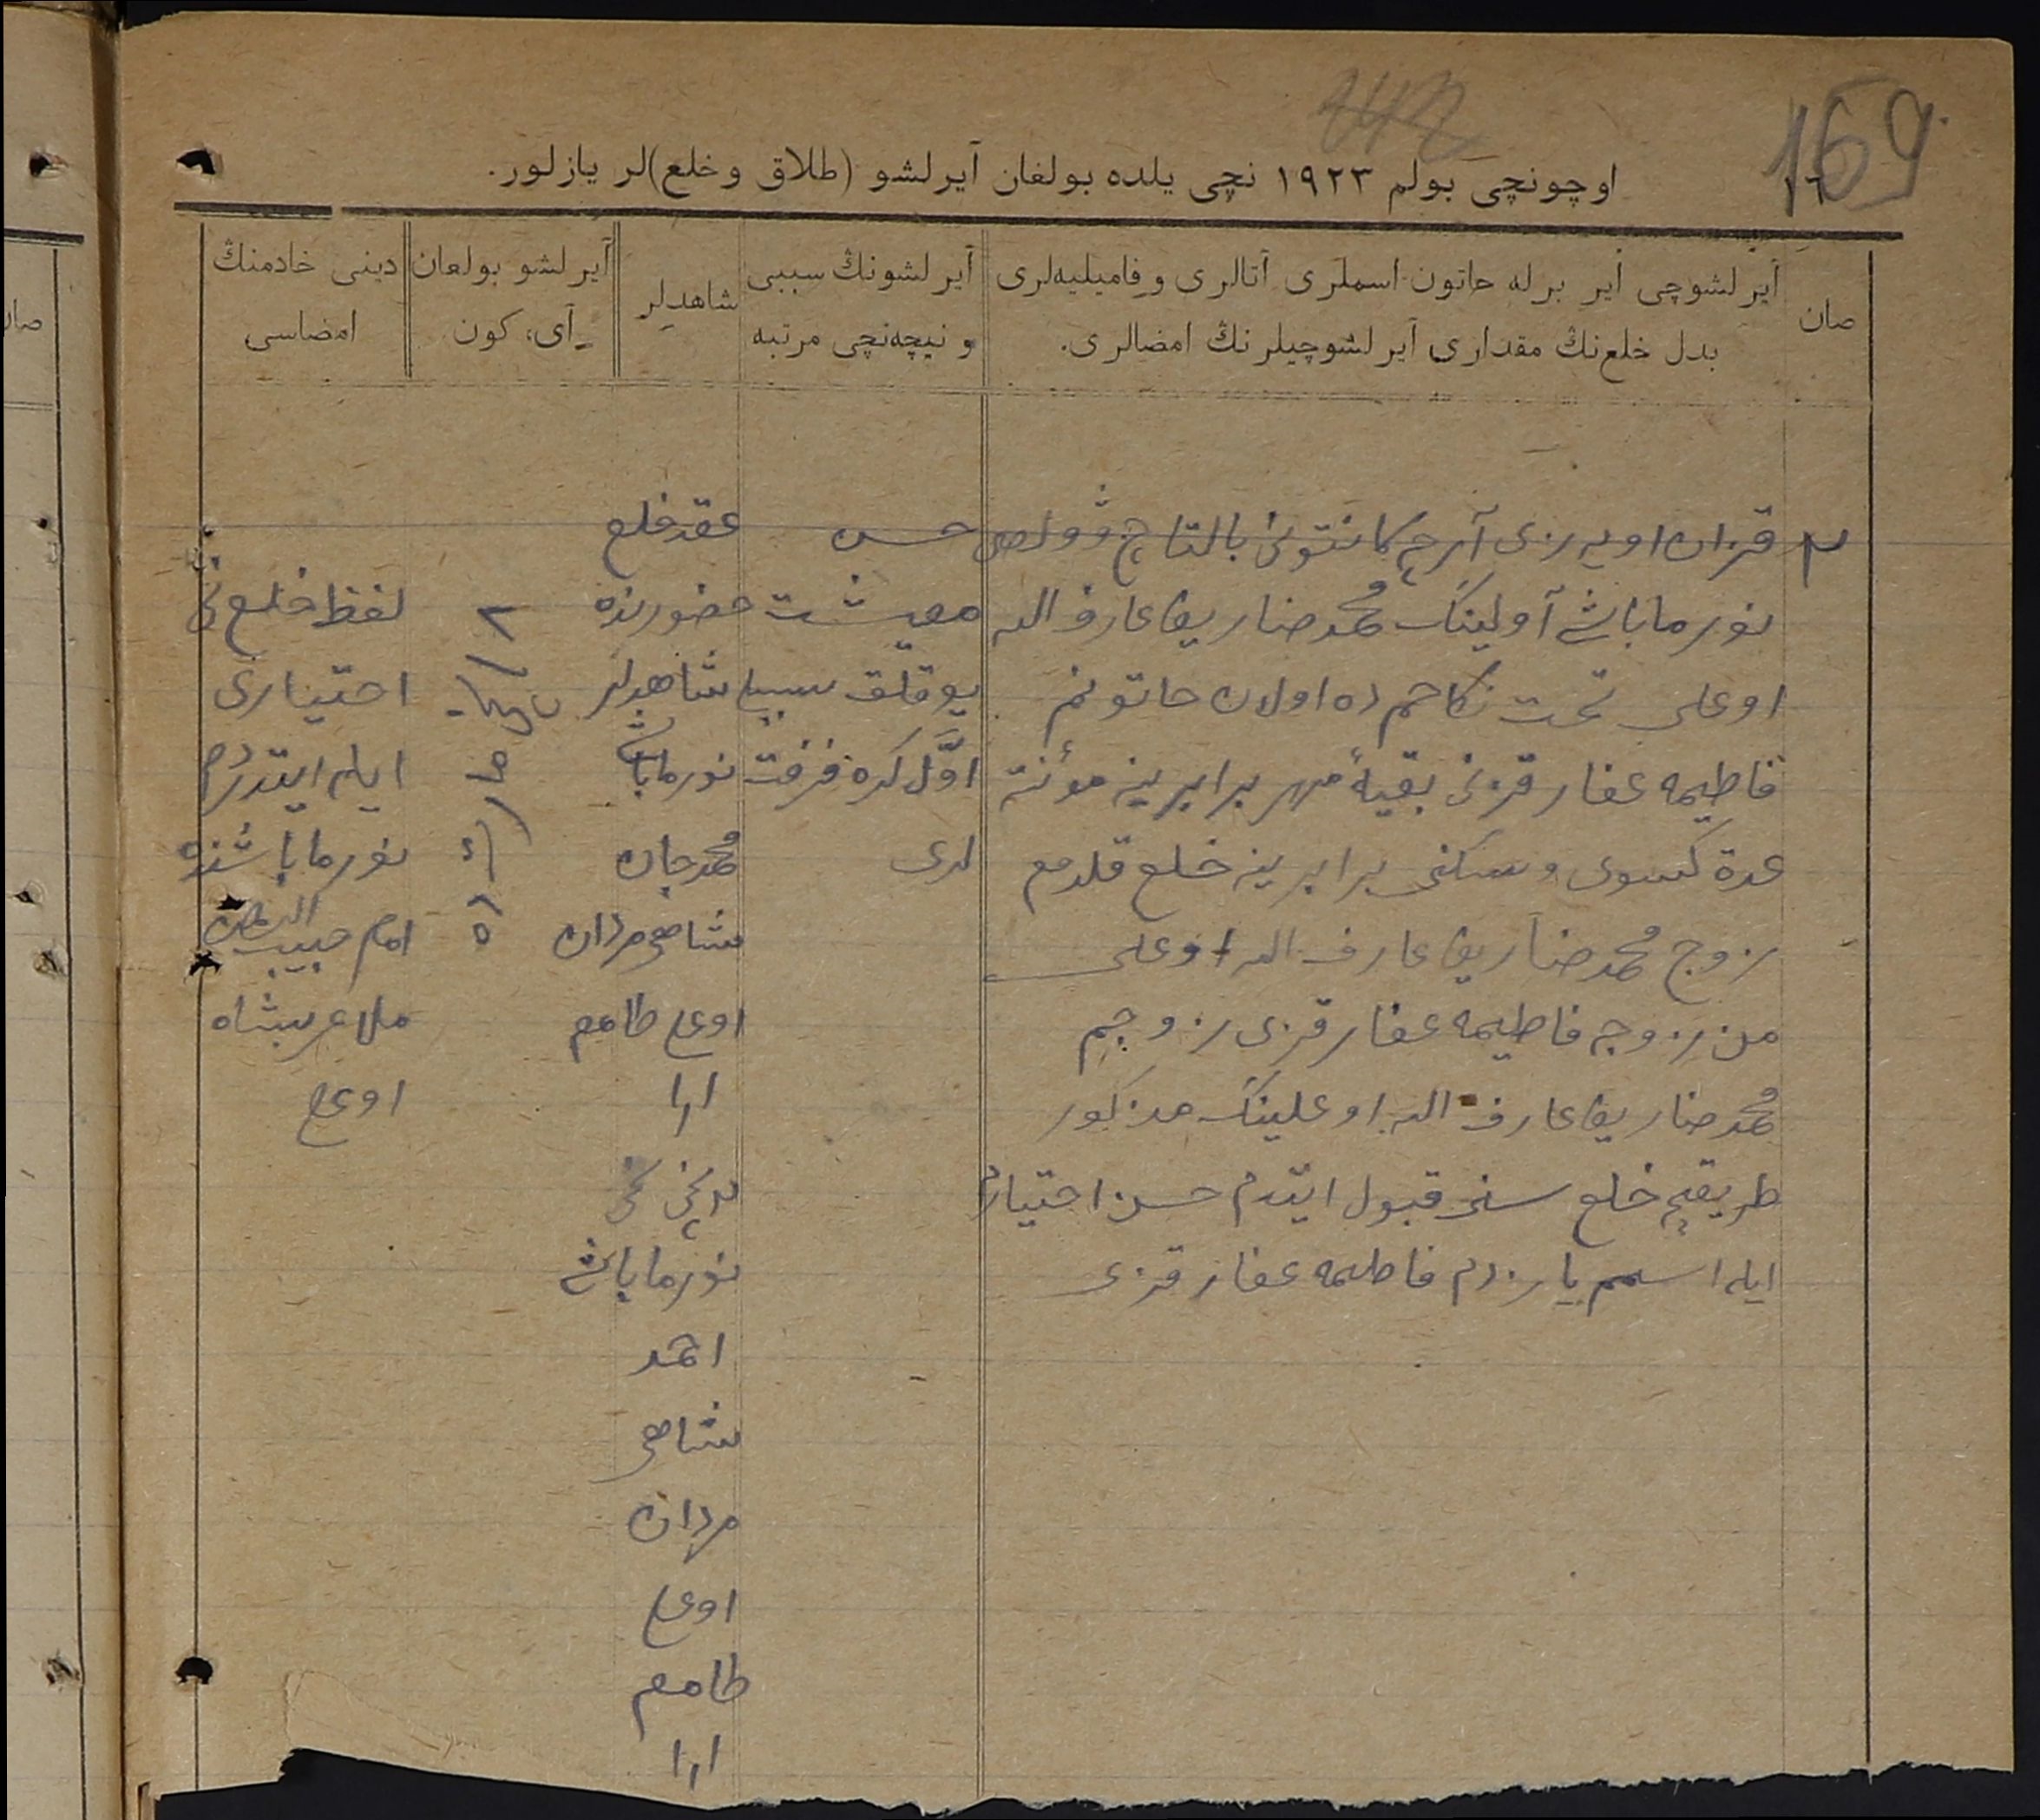 169
١٦
اوچونچی بولم ١٩٢٣ نچی یلده بولغان آیرلشو (طلاق و خلع)لر یازلور.
صان
آیرلشوچی ایر برله حاتون اسملری آتالری و فامیلیه‌لری
بدل خلع‌نڭ مقداری آیرلشوچیلرنڭ امضالری.
آیرلشونڭ سببی
و نیچه‌نچی مرتبه
شاهدلر
آیرلشو بولغان
آی، کون
دینی خادمنڭ
امضاسی
صان
قزان اویه‌زی آرچه کانتونی بالتاچ وولصی
نورما باشی آولینک محمد ضاریف عارف الله
اوغلی تحت نکاحم ده اولان حاتونم
فاطیمه غفار قزنی بقیهٔ مهر برابرینه مؤنة
عدة کسوی و سکنی برابرینه خلع قلدم مع
زوج محمد ضاریف عارف الله اوغلی
من زوجه فاطیمه غفار قزی زوجم
محمد ضاریف عارف الله اوغلینک مذکور
طریقچه خلع سنی قبول ایتدم حسن اختیارم
ایله اسمم یازدم فاطیمه غفار قزی
حسن
معیشت
یوقلق سببلی
اوّل کره فرقت
لری
عقد خلع
حضورنده
شاهدلر
نورما باش
محمدجان
شاهی مردان
اوغلی
نورما باشی
احمد
شاهی
مردان
اوغلی
٢
لفظ خلع نی
اختیاری
ایله ایتدردم
نورما باشنده
امام حبیب الرحمن
ملا عربشاه
اوغلی